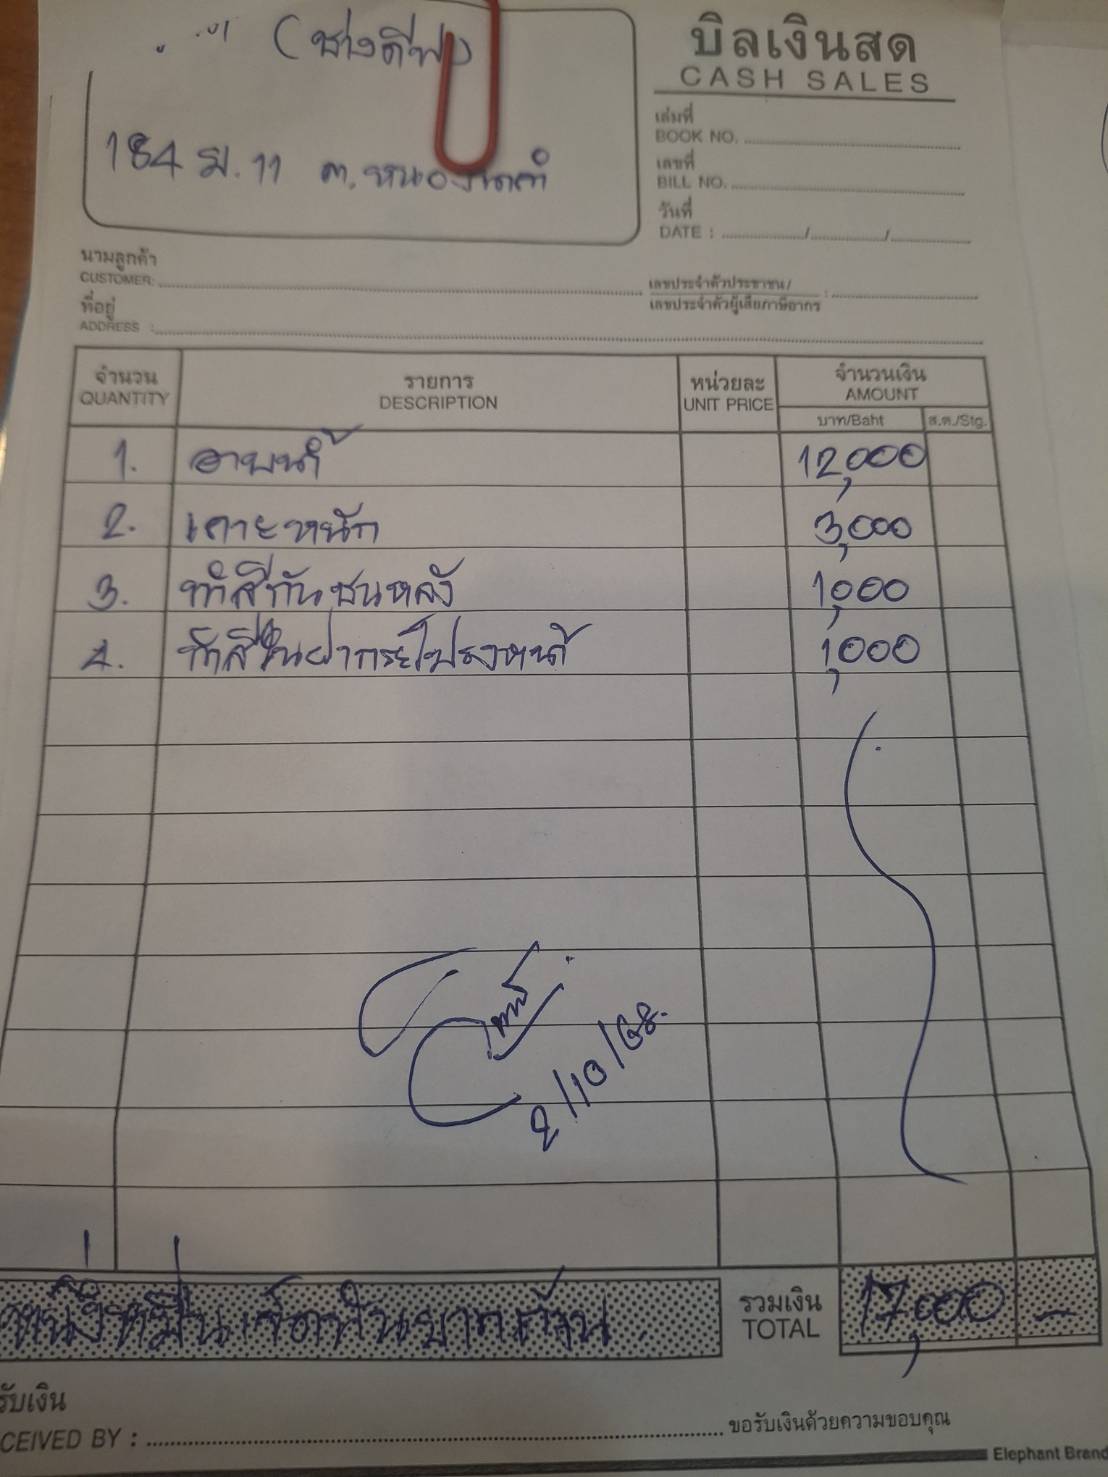 (ช่างดีฟ)
184 ม.11 ต.หนอง
บิลเงินสด
CASH SALES
เล่มที่
BOOK NO.
เลขที่
BILL NO.
วันที่
DATE : / /
นามลูกค้า
CUSTOMER:
เลขประจำตัวประชาชน/
เลขประจำตัวผู้เสียภาษีอากร :
ที่อยู่
ADDRESS :
จำนวน รายการ หน่วยละ จำนวนเงิน
QUANTITY DESCRIPTION UNIT PRICE AMOUNT
บาท/Baht ส.ต./Stg.
1. อาบน้ำ 12,000
2. เคาะหนัก 3,000
3. ทำสีกันชนหลัง 1,000
4. ทำสีในฝากระโปรงหน้า 1,000
2/10/68.
หนึ่งหมื่นเจ็ดพันบาทถ้วน
รวมเงิน 17,000 -
TOTAL
รับเงิน
CEIVED BY : ขอรับเงินด้วยความขอบคุณ
Elephant Brand